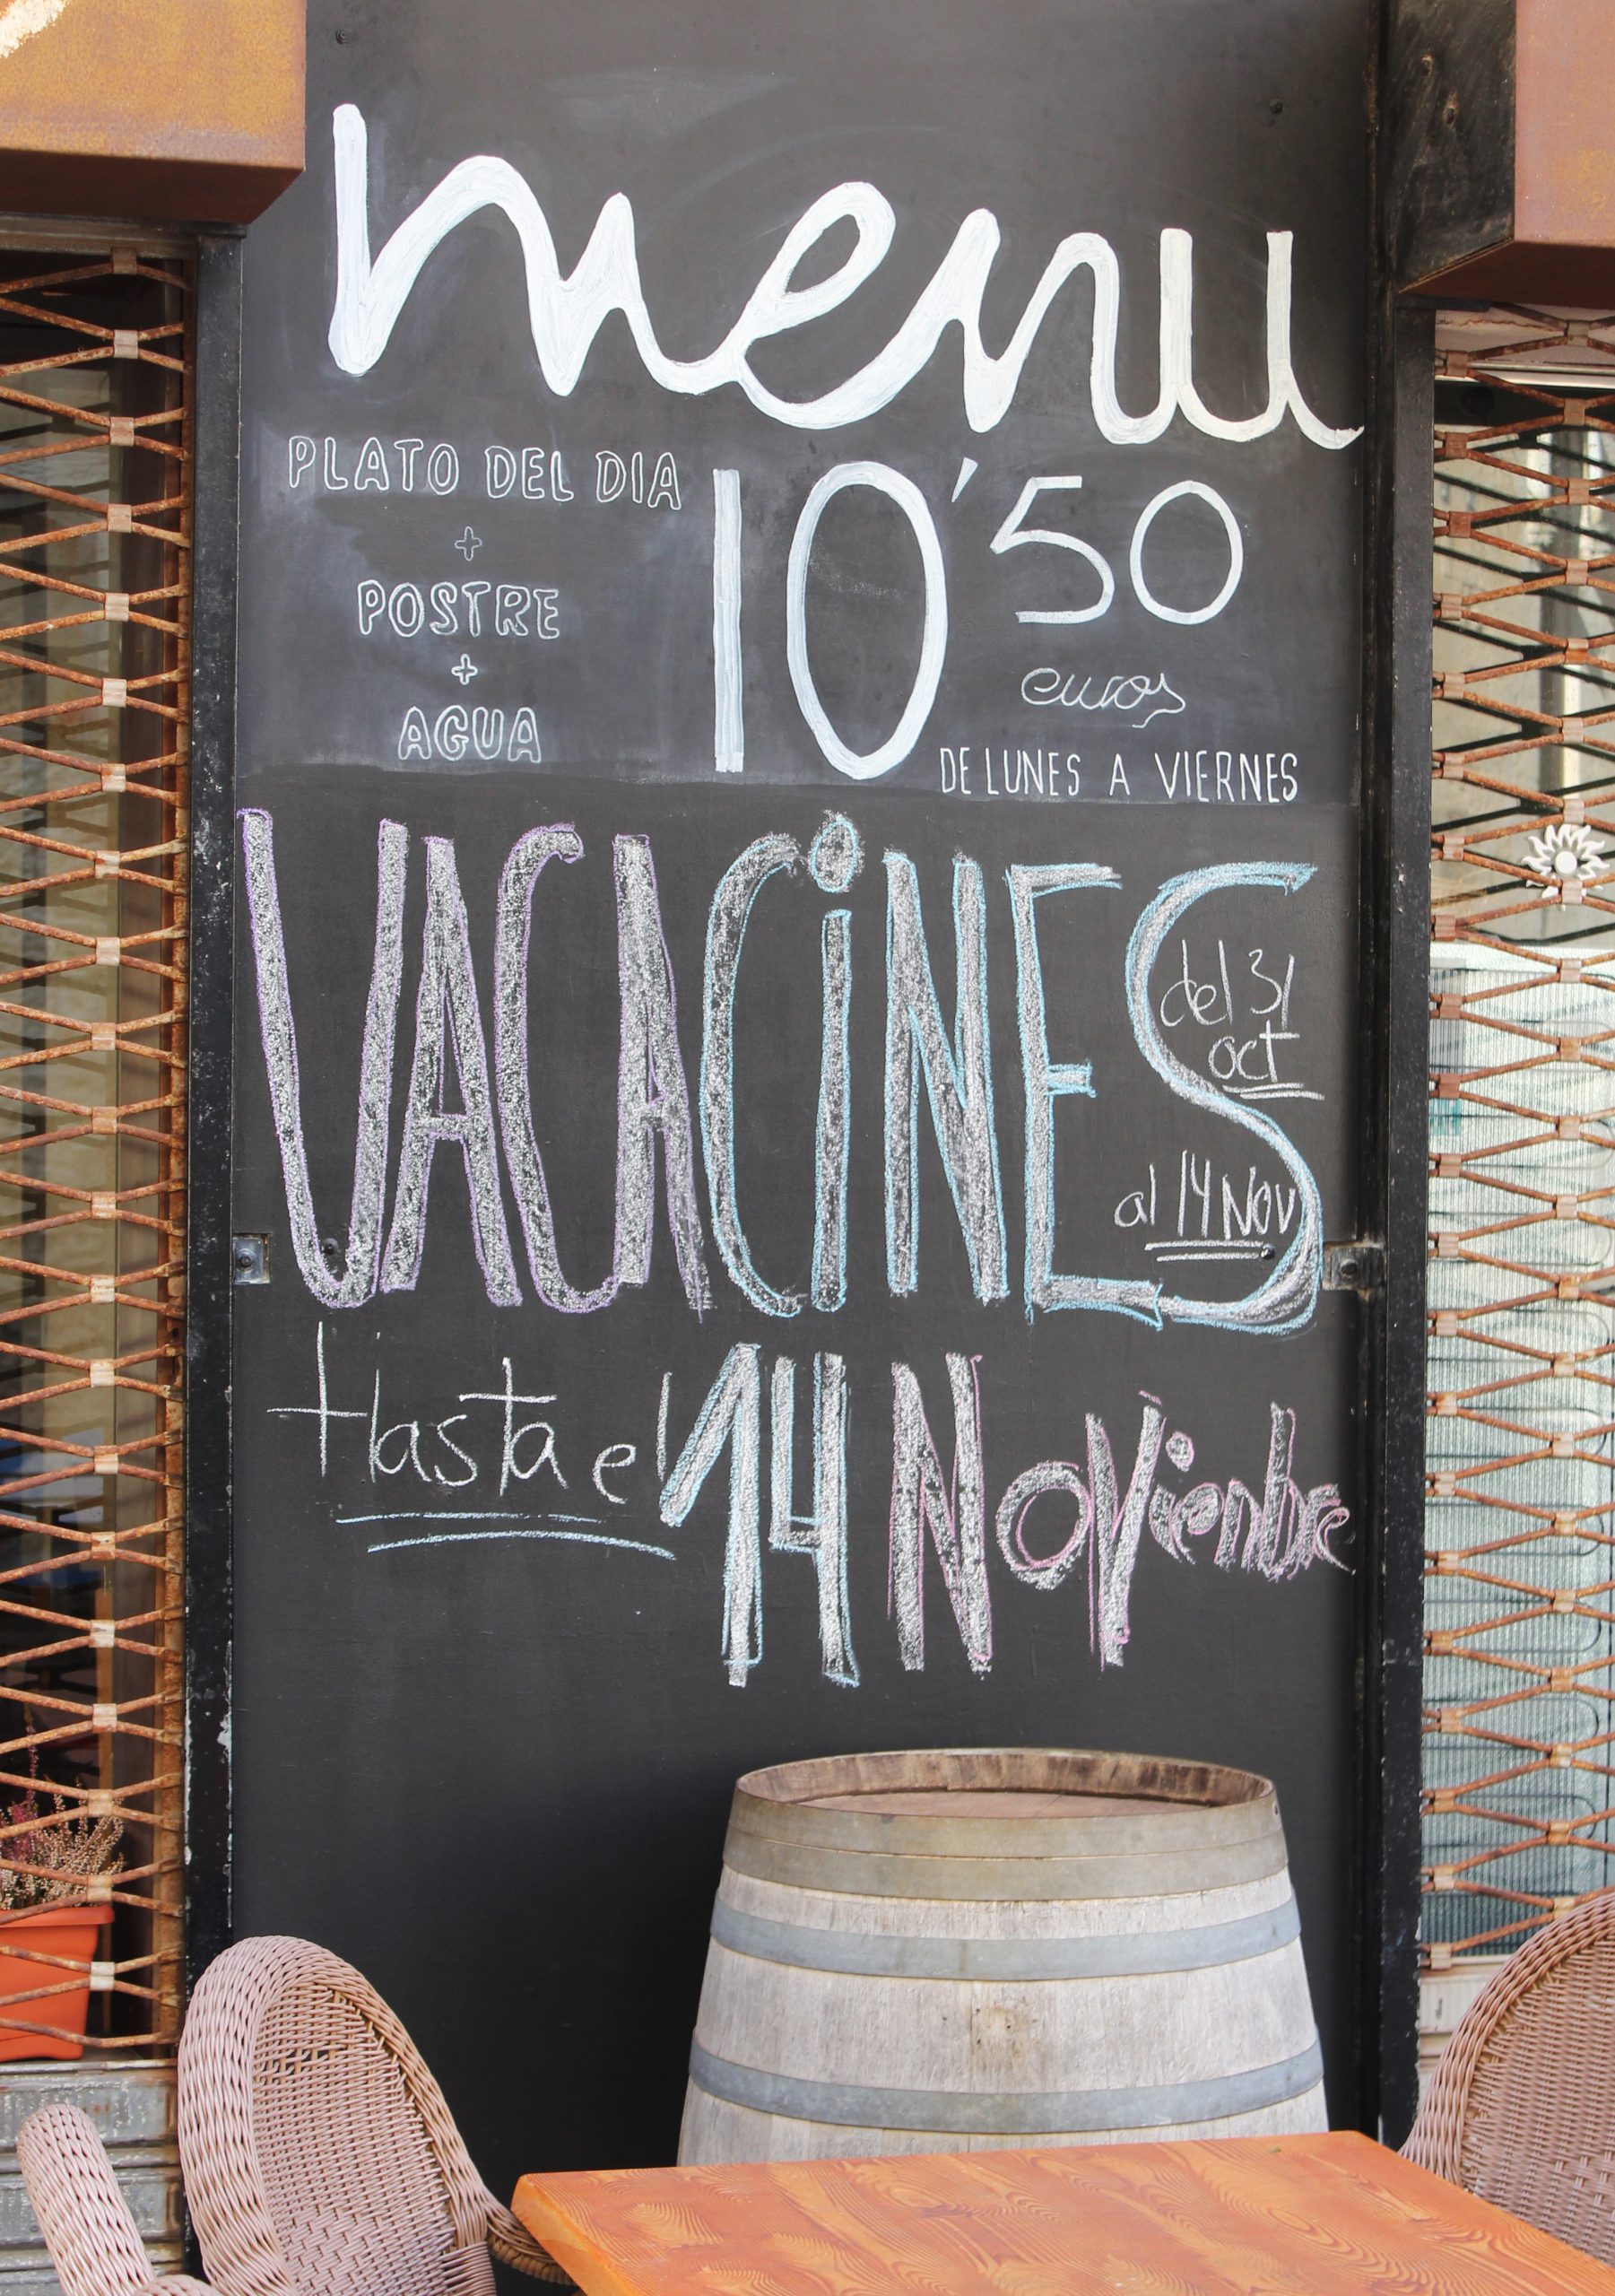 menu
PLATO DEL DIA
+
POSTRE
+
AGUA
10'50
euros
DE LUNES A VIERNES
VACACiNES
del 31
oct
al 14 NOV
Hasta el 14 Novienbre